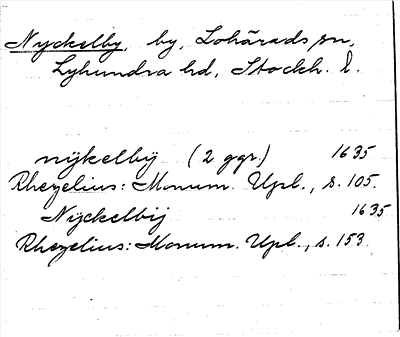 Nyckelby, by, Lohärads sn,
Lyhundra hd, Stockh. l.
nÿkelbÿ (2 ggr.) 1635
Rhezelius: Monum. Upl., s. 105.
Nyckelbij 1635
Rhezelius: Monum. Upl., s. 153.